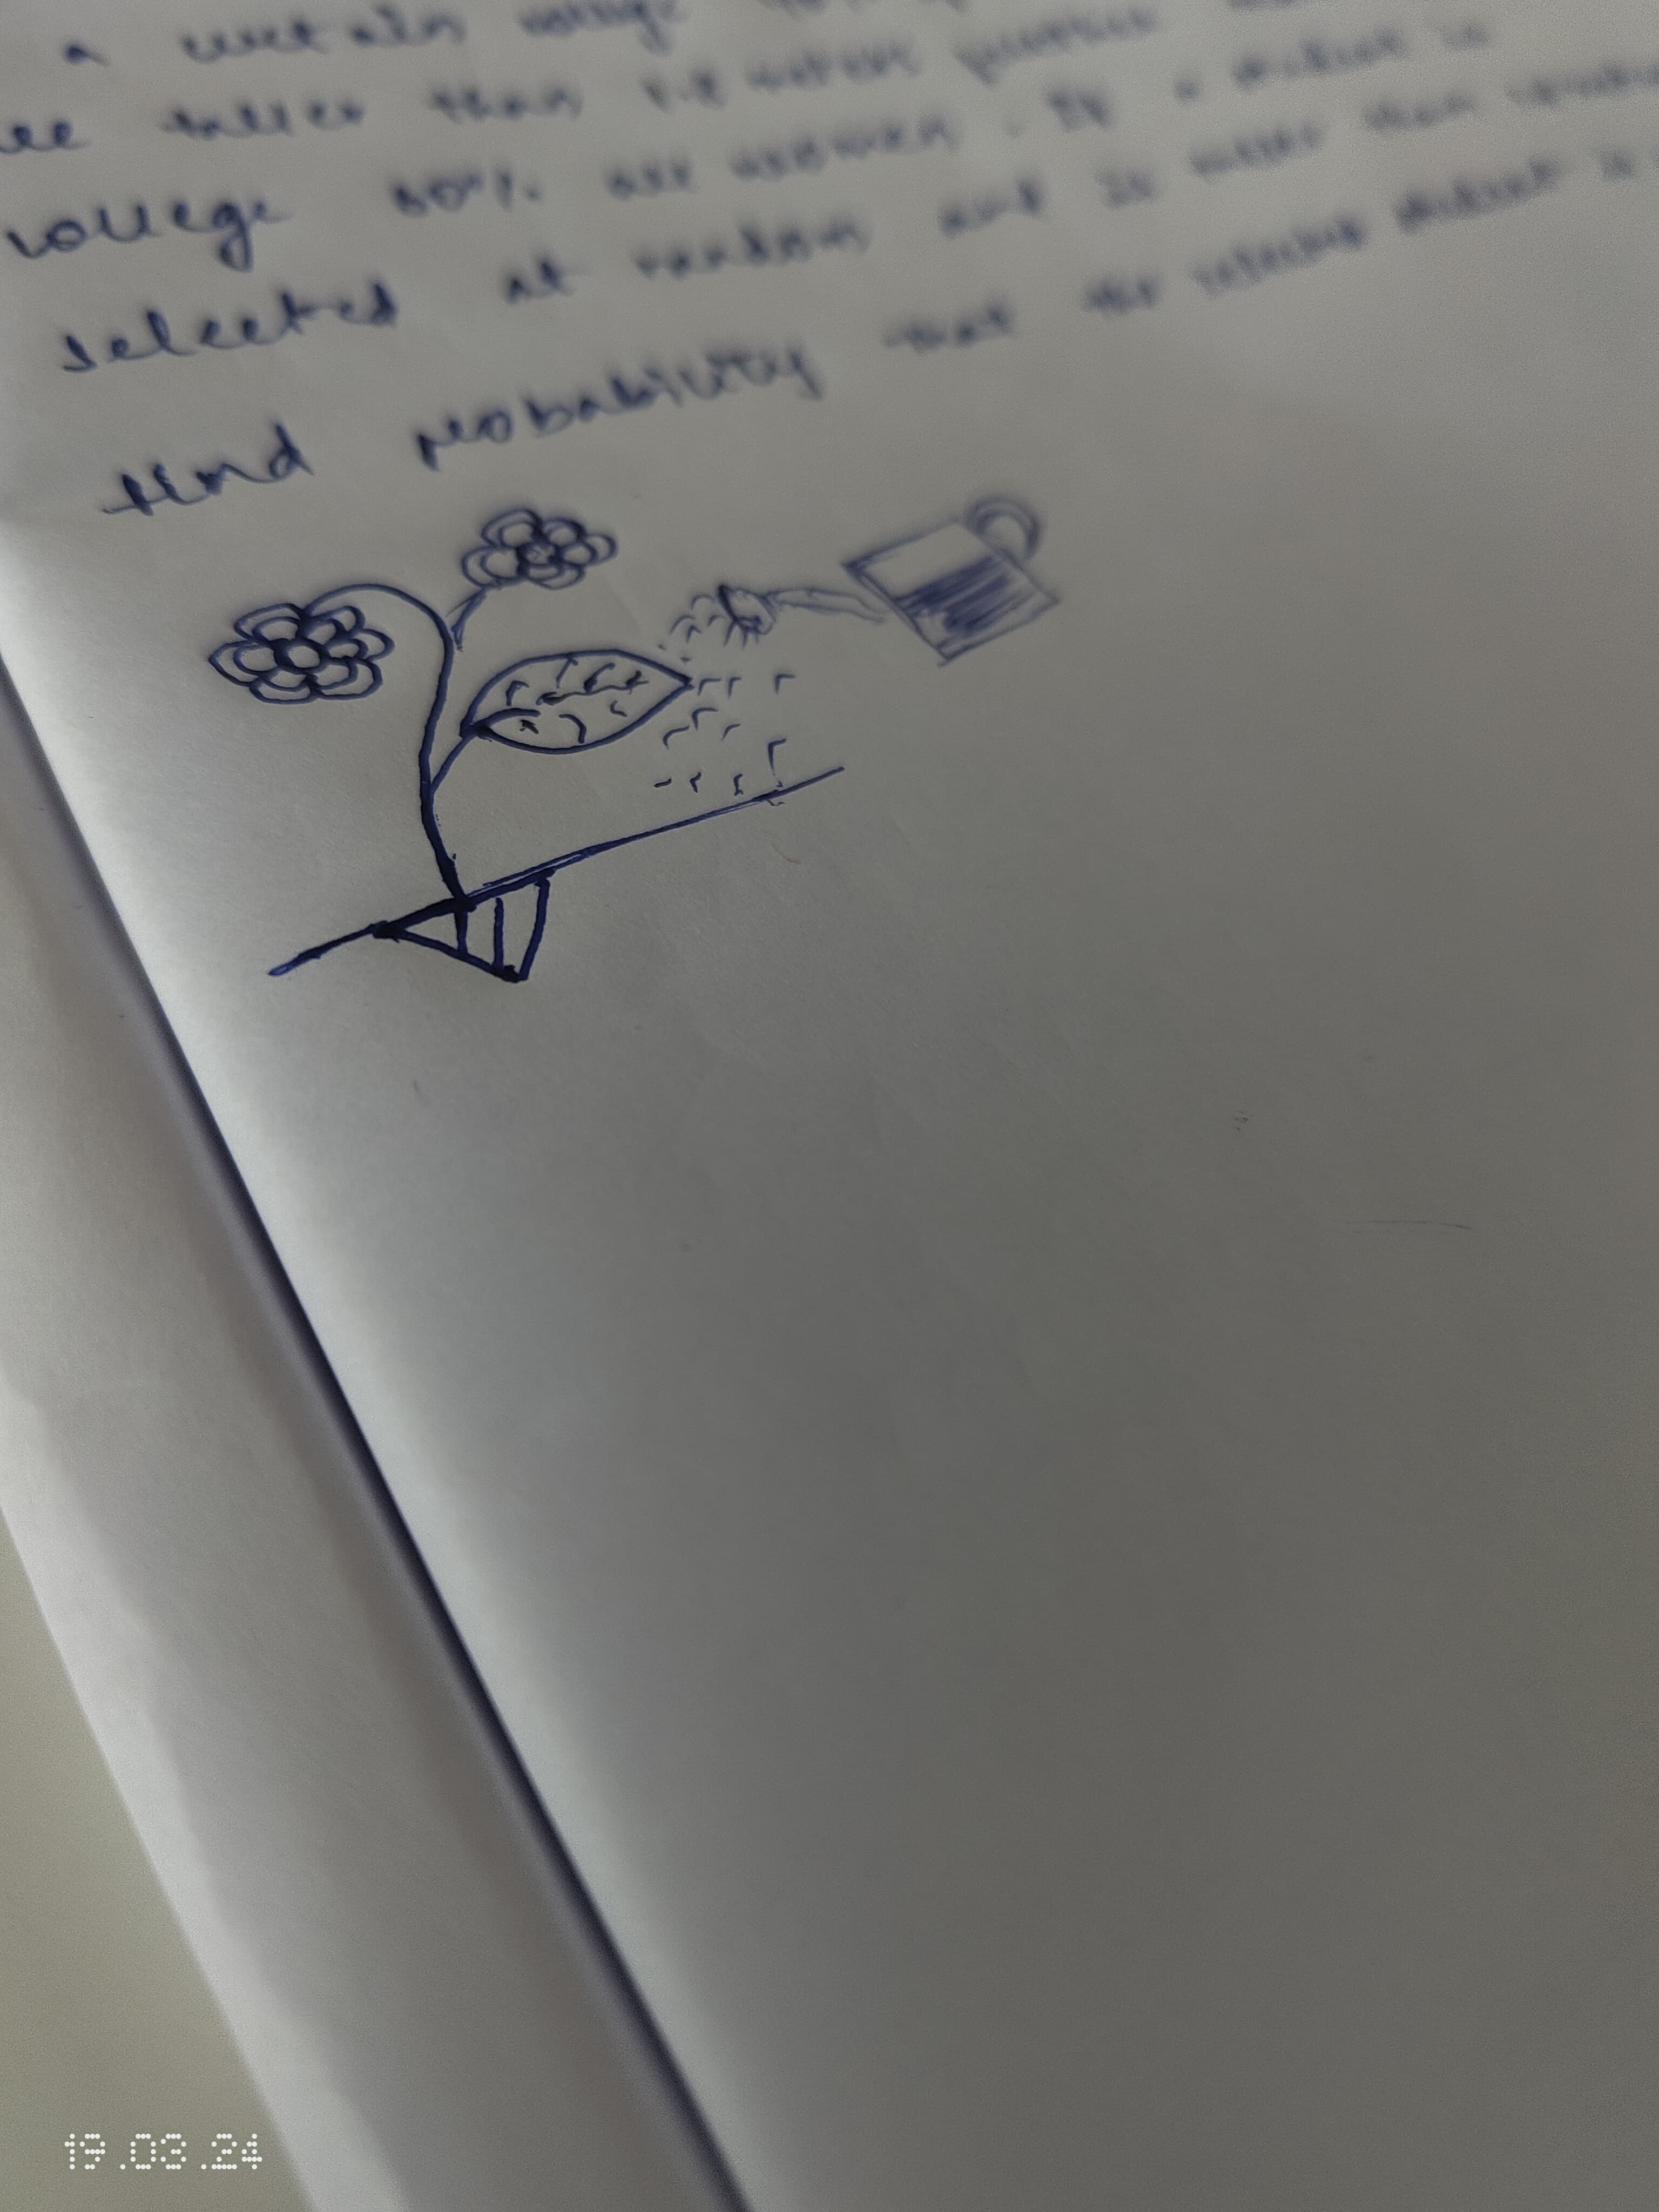 a certain college
are taller than 1.8
college 60% are women. If a student is
selected at random and is taller than
find probability that the selected student is
19.03.24